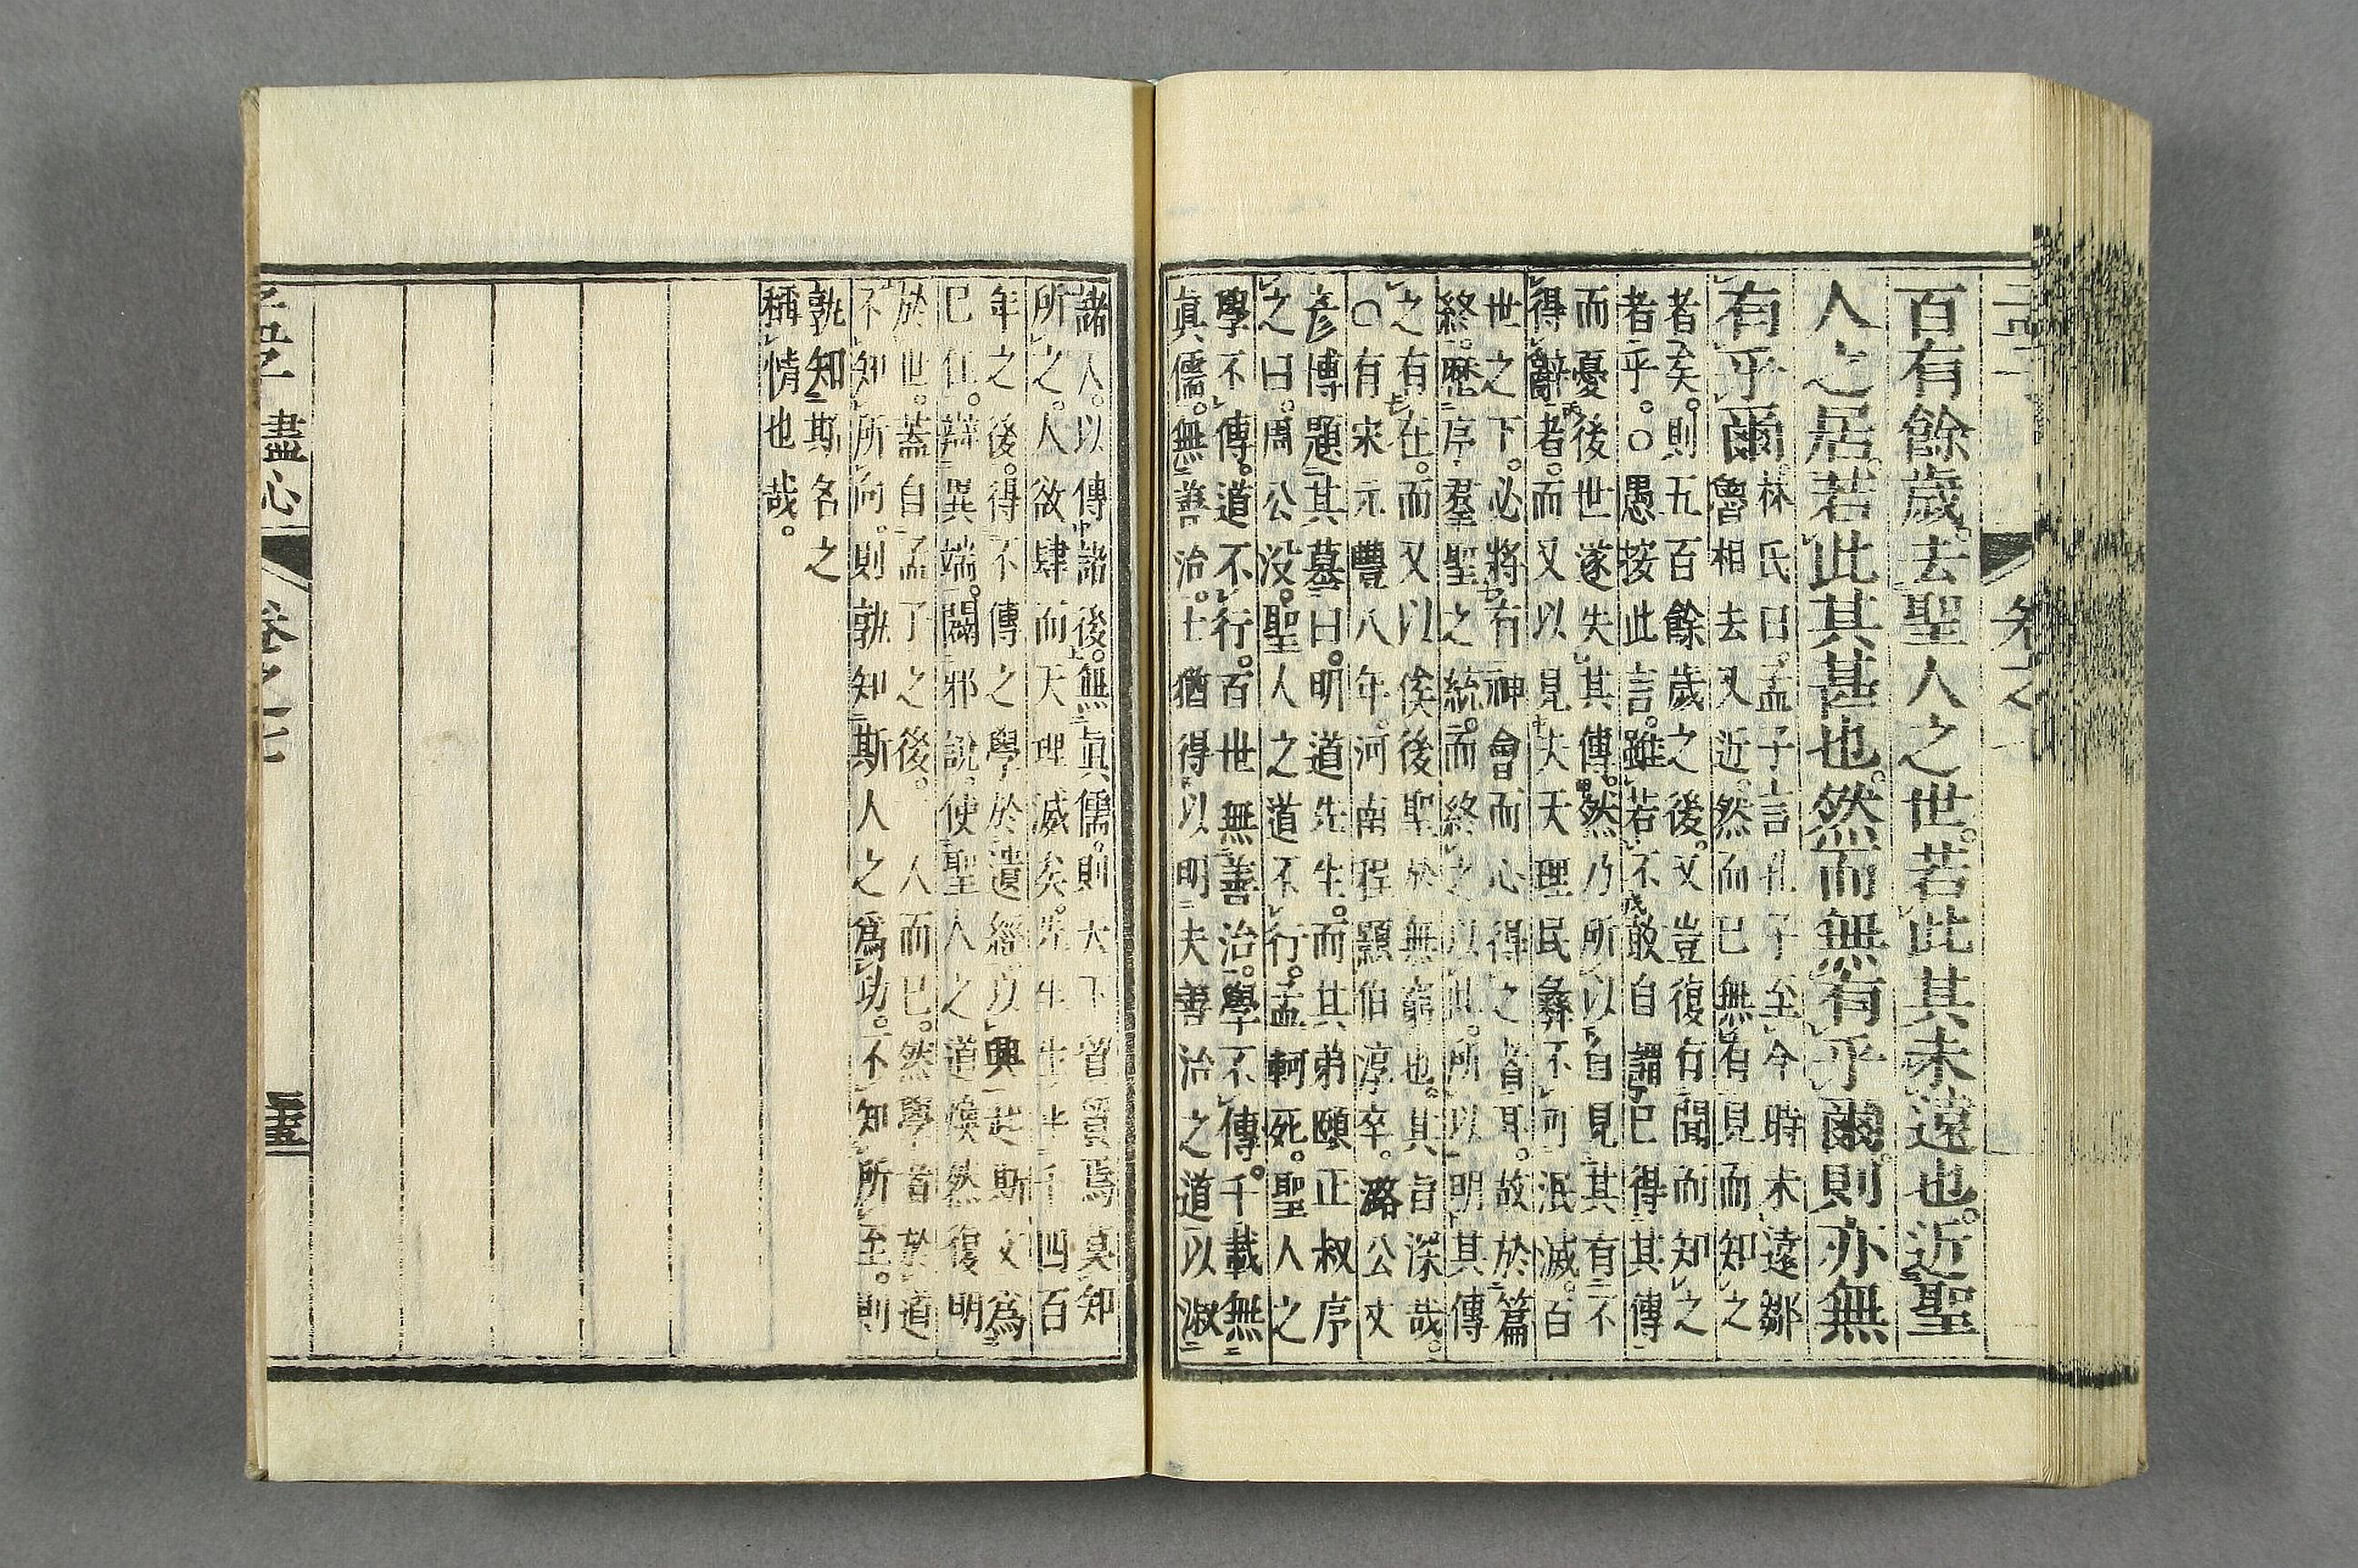 百有餘歲。去聖人之世。若此其未遠也。近聖
人之居。若此其甚也。然而無有乎爾。則亦無
有乎爾。林氏曰。孟子言孔子至今時未遠。鄒
魯相去又近。然而已無有見而知之
者矣。則五百餘歲之後。又豈復有聞而知之
者乎。○愚按此言。雖若不敢自謂已得其傳
而憂後世遂失其傳。然乃所以自見其有不
得辭者。而又以見夫天理民彝不可泯滅。百
世之下。必將有神會而心得之者耳。故於篇
終。歷序羣聖之統。而終之以此。所以明其傳
之有在。而又以俟後聖於無窮也。其旨深哉。
○有宋元豐八年。河南程顥伯淳卒。潞公文
彥博題其墓曰。明道先生。而其弟頤正叔序
之曰。周公没。聖人之道不行。孟軻死。聖人之
學不傳。道不行。百世無善治。學不傳。千載無
眞儒。無善治。士猶得以明夫善治之道以淑
諸人。以傳諸後。無眞儒。則天下貿貿焉莫知
所之。人欲肆而天理滅矣。先生生乎千四百
年之後。得不傳之學於遺經。以興起斯文爲
已任。辯異端。闢邪說。使聖人之道煥然復明
於世。蓋自孟子之後。一人而已。然學者於道
不知所向。則孰知斯人之爲功。不知所至。則
孰知斯名之
稱情也哉。
孟子 盡心 卷之七